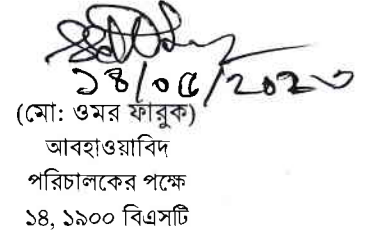 ১৪/০৫/২০২৩
(মো: ওমর ফারুক)
আবহাওয়াবিদ
পরিচালকের পক্ষে
১৪, ১৯০০ বিএসটি